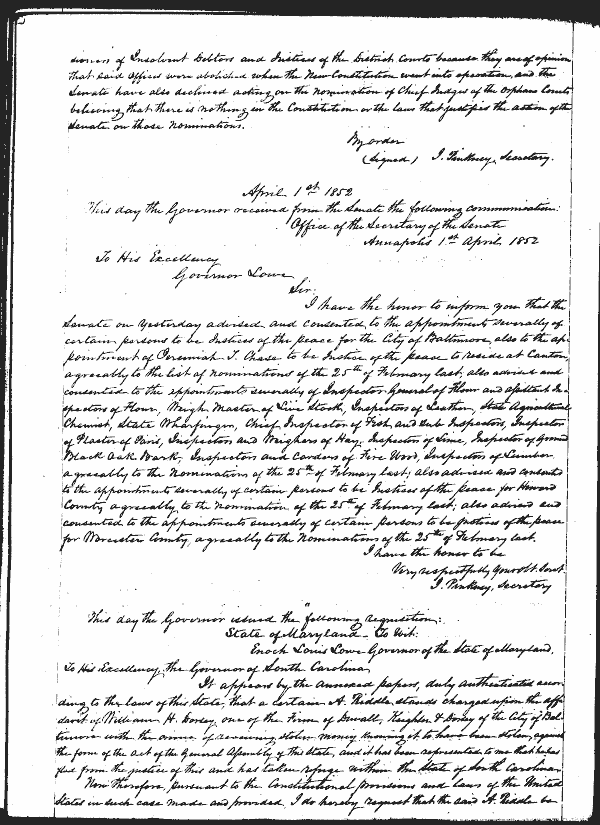 sioners of Insolvent Debtors and Justices of the District Courts because they are of opinion
that said Offices were abolished when the New Constitution went into operation, and the
Senate have also declined acting on the nomination of Chief Judges of the Orphans Courts
believing that there is nothing in the Constitution or the laws that justifies the action of the
Senate on those nominations.
By order
(Signed) I. Pinkney, Secretary.
April 1st 1852
This day the Governor received from the Senate the following communication:
Office of the Secretary of the Senate
Annapolis 1st April 1852
To His Excellency
Governor Lowe
Sir:
I have the honor to inform you that the
Senate on yesterday advised and consented to the appointments severally of
certain persons to be Justices of the peace for the City of Baltimore, also to the ap-
pointment of Jeremiah T. Chase to be Justice of the peace to reside at Canton,
agreeably to the list of nominations of the 25th of February last; also advised and
consented to the appointments severally of Inspector General of Flour and assistant In-
spectors of Flour, Weigh Master of Live Stock, Inspectors of Leather, State Agricultural
Chemist, State Wharfinger, Chief Inspector of Fish, and sub Inspectors, Inspector
of Plaster of Paris, Inspectors and Weighers of Hay, Inspector of Lime, Inspector of Ground
Black Oak Bark, Inspectors and Corders of Fire Wood, Inspectors of Lumber
agreeably to the Nominations of the 25th of February last; also advised and consented
to the appointments severally of certain persons to be Justices of the peace for Howard
County, agreeably to the nomination of the 25th of February last; also advised and
consented to the appointments severally of certain persons to be Justices of the peace
for Worcester County, agreeably to the Nominations of the 25th of February last.
I have the honor to be
Very respectfully your obt. Servt.
I. Pinkney, Secretary
This day the Governor issued the following requisition:
State of Maryland - To Wit:
Enoch Louis Lowe Governor of the State of Maryland.
To His Excellency the Governor of South Carolina,
It appears by the annexed papers, duly authenticated accor-
ding to the laws of this State, that a certain A. Riddle stands charged upon the affi-
davit of William H. Dorsey, one of the Firm of Duvall, Keighler & Dorsey of the City of Bal-
timore with the crime of receiving stolen money knowing it to have been stolen, against
the form of the act of the General Assembly of this State, and it has been represented to me that he has
fled from the justice of this and has taken refuge within the State of South Carolina.
Now therefore, pursuant to the Constitutional provisions and laws of the United
States in such case made and provided, I do hereby request that the said A. Riddle be